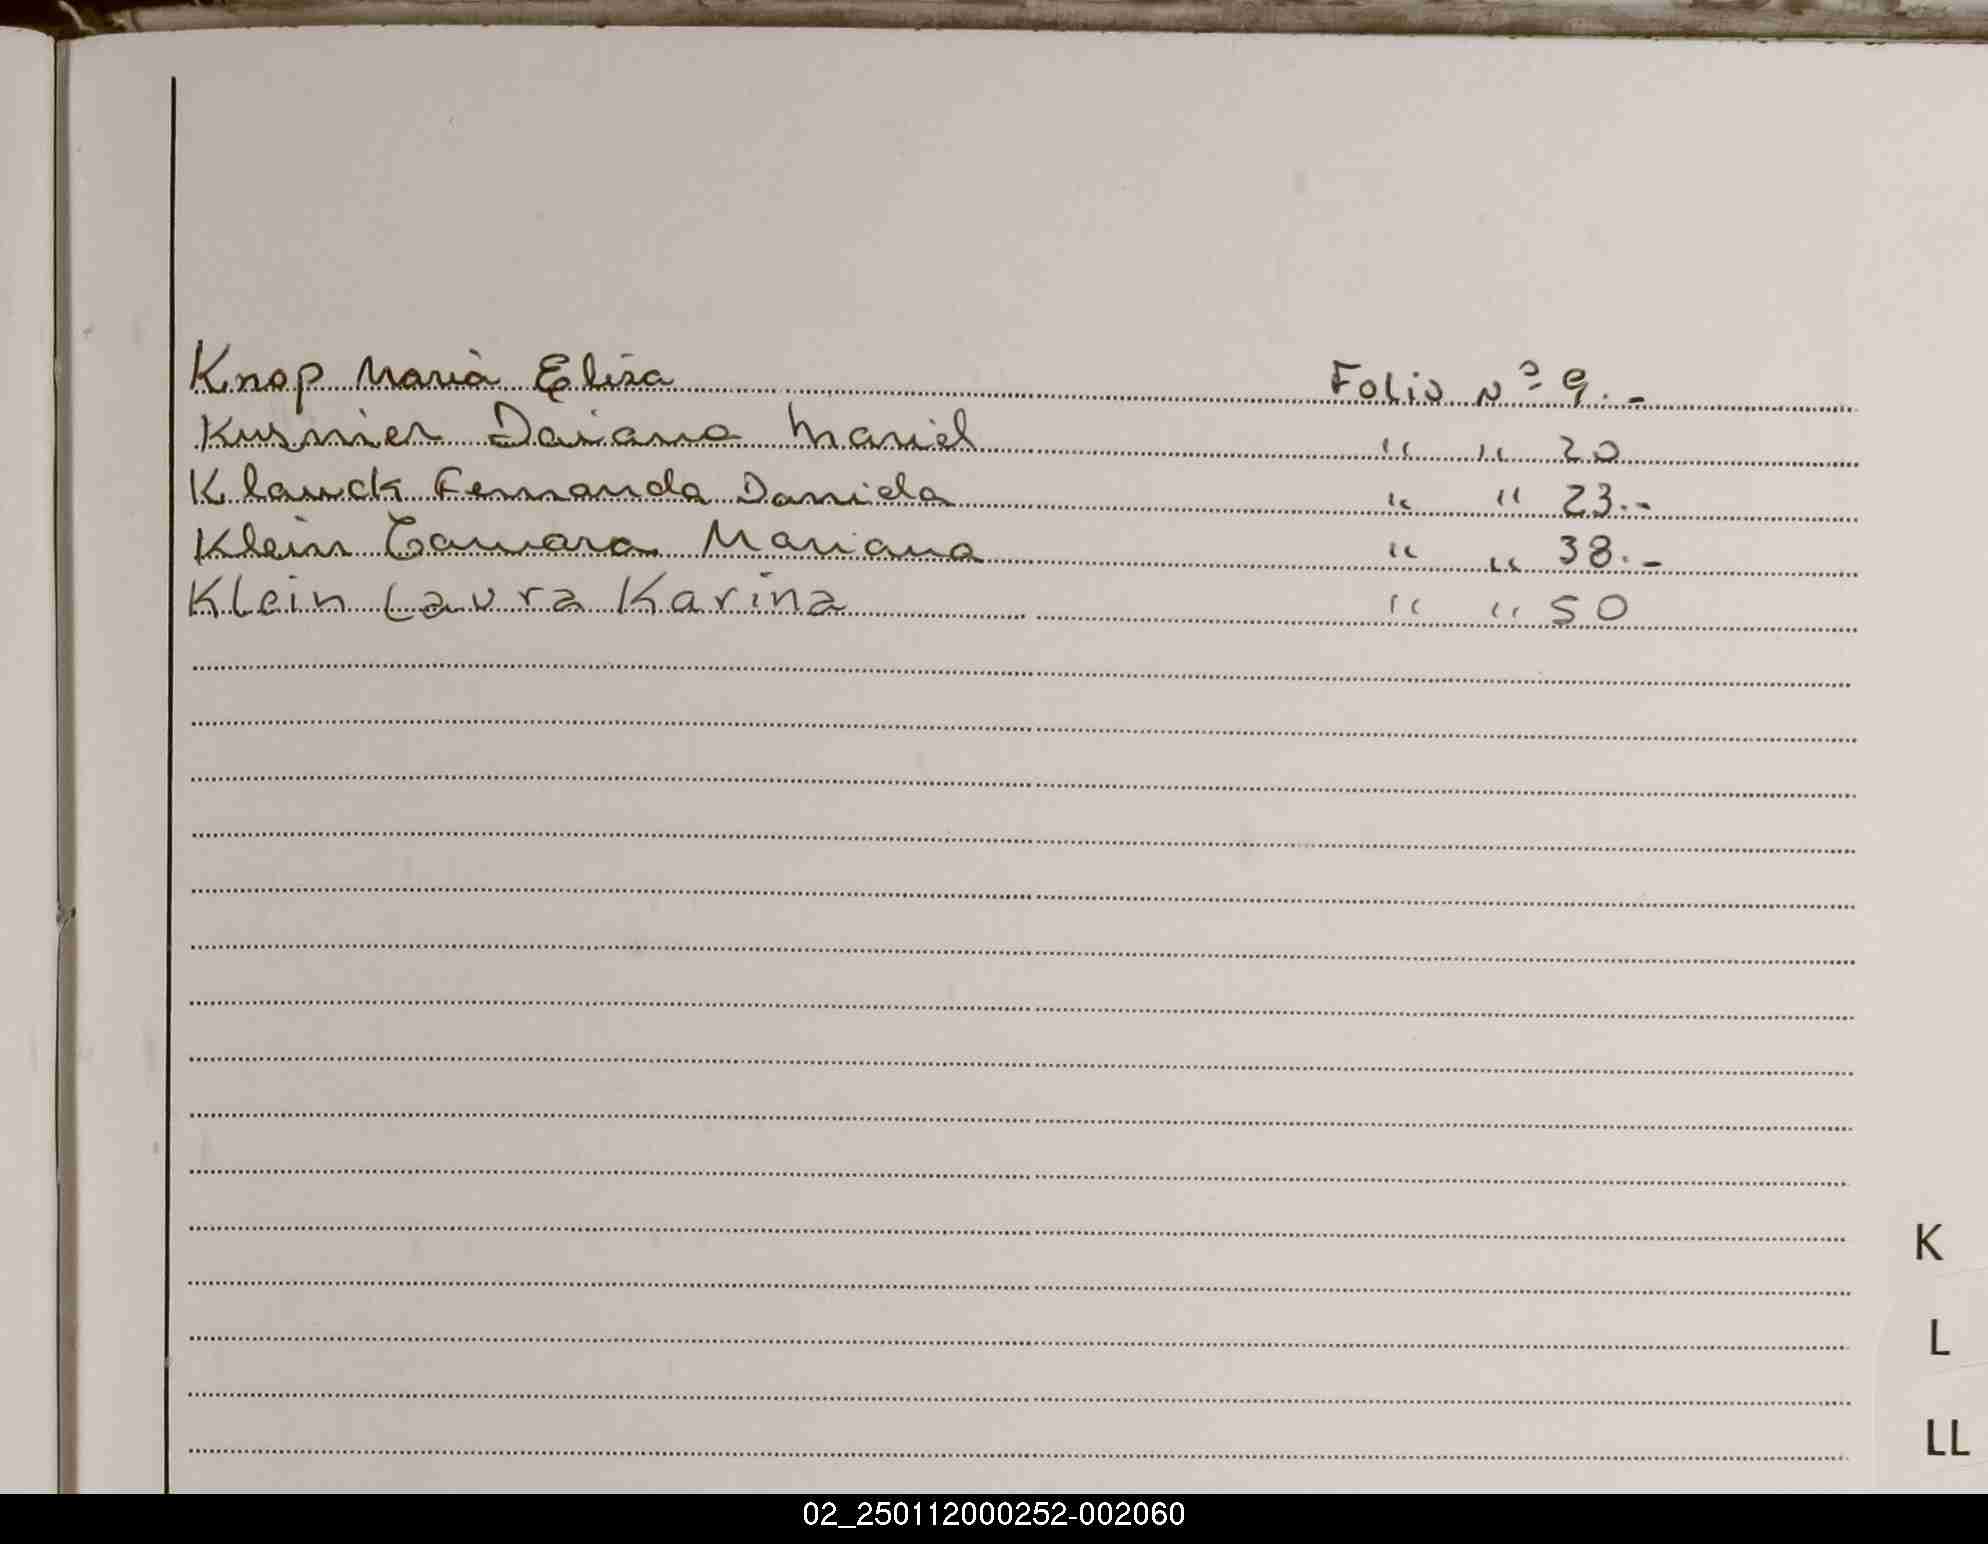 Knop Maria Elisa Folio Nº 9.-
Kusnier Daiana Mariel " " 20
Klauck Fernanda Daniela " " 23.-
Klein Tamara Mariana " " 38.-
Klein Laura Karina " " 50
K
L
LL
02_250112000252-002060